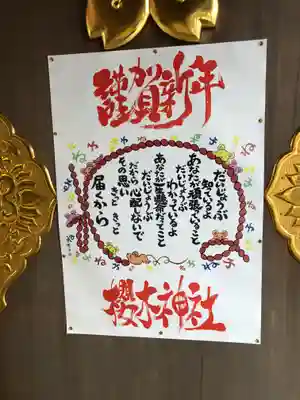 謹賀新年
だいじょうぶ
知っているよ
あなたが頑張っていること
だいじょうぶ
わかっているよ
あなたが一生懸命だってこと
だいじょうぶ
だから心配ないで
その思い
きっと きっと
届くから
櫻木神社